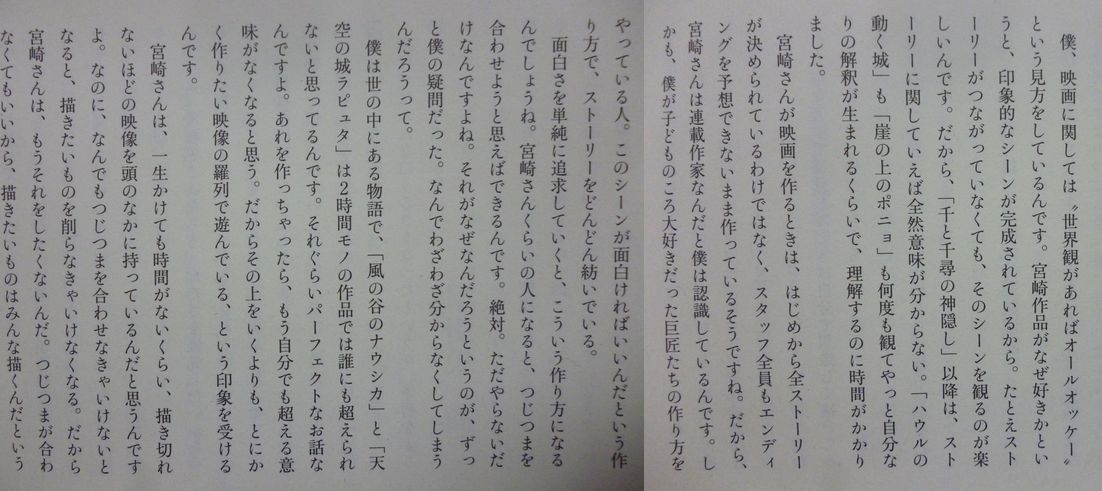 僕、映画に関しては〝世界観があればオールオッケー〟
という見方をしているんです。宮崎作品がなぜ好きかとい
うと、印象的なシーンが完成されているから。たとえスト
ーリーがつながっていなくても、そのシーンを観るのが楽
しいんです。だから、「千と千尋の神隠し」以降は、スト
ーリーに関していえば全然意味が分からない。「ハウルの
動く城」も「崖の上のポニョ」も何度も観てやっと自分な
りの解釈が生まれるくらいで、理解するのに時間がかかり
ました。
宮崎さんが映画を作るときは、はじめから全ストーリー
が決められているわけではなく、スタッフ全員もエンディ
ングを予想できないまま作っているそうですね。だから、
宮崎さんは連載作家なんだと僕は認識しているんです。し
かも、僕が子どものころ大好きだった巨匠たちの作り方を
やっている人。このシーンが面白ければいいんだという作
り方で、ストーリーをどんどん紡いでいる。
面白さを単純に追求していくと、こういう作り方になる
んでしょうね。宮崎さんくらいの人になると、つじつまを
合わせようと思えばできるんです。絶対。ただやらないだ
けなんですよね。それがなぜなんだろうというのが、ずっ
と僕の疑問だった。なんでわざわざ分からなくしてしまう
んだろうって。
僕は世の中にある物語で、「風の谷のナウシカ」と「天
空の城ラピュタ」は2時間モノの作品では誰にも超えられ
ないと思ってるんです。それぐらいパーフェクトなお話な
んですよ。あれを作っちゃったら、もう自分でも超える意
味がなくなると思う。だからその上をいくよりも、とにか
く作りたい映像の羅列で遊んでいる、という印象を受ける
んです。
宮崎さんは、一生かけても時間がないくらい、描き切れ
ないほどの映像を頭のなかに持っているんだと思うんです
よ。なのに、なんでもつじつまを合わせなきゃいけないと
なると、描きたいものを削らなきゃいけなくなる。だから
宮崎さんは、もうそれをしたくないんだ。つじつまが合わ
なくてもいいから、描きたいものはみんな描くんだという